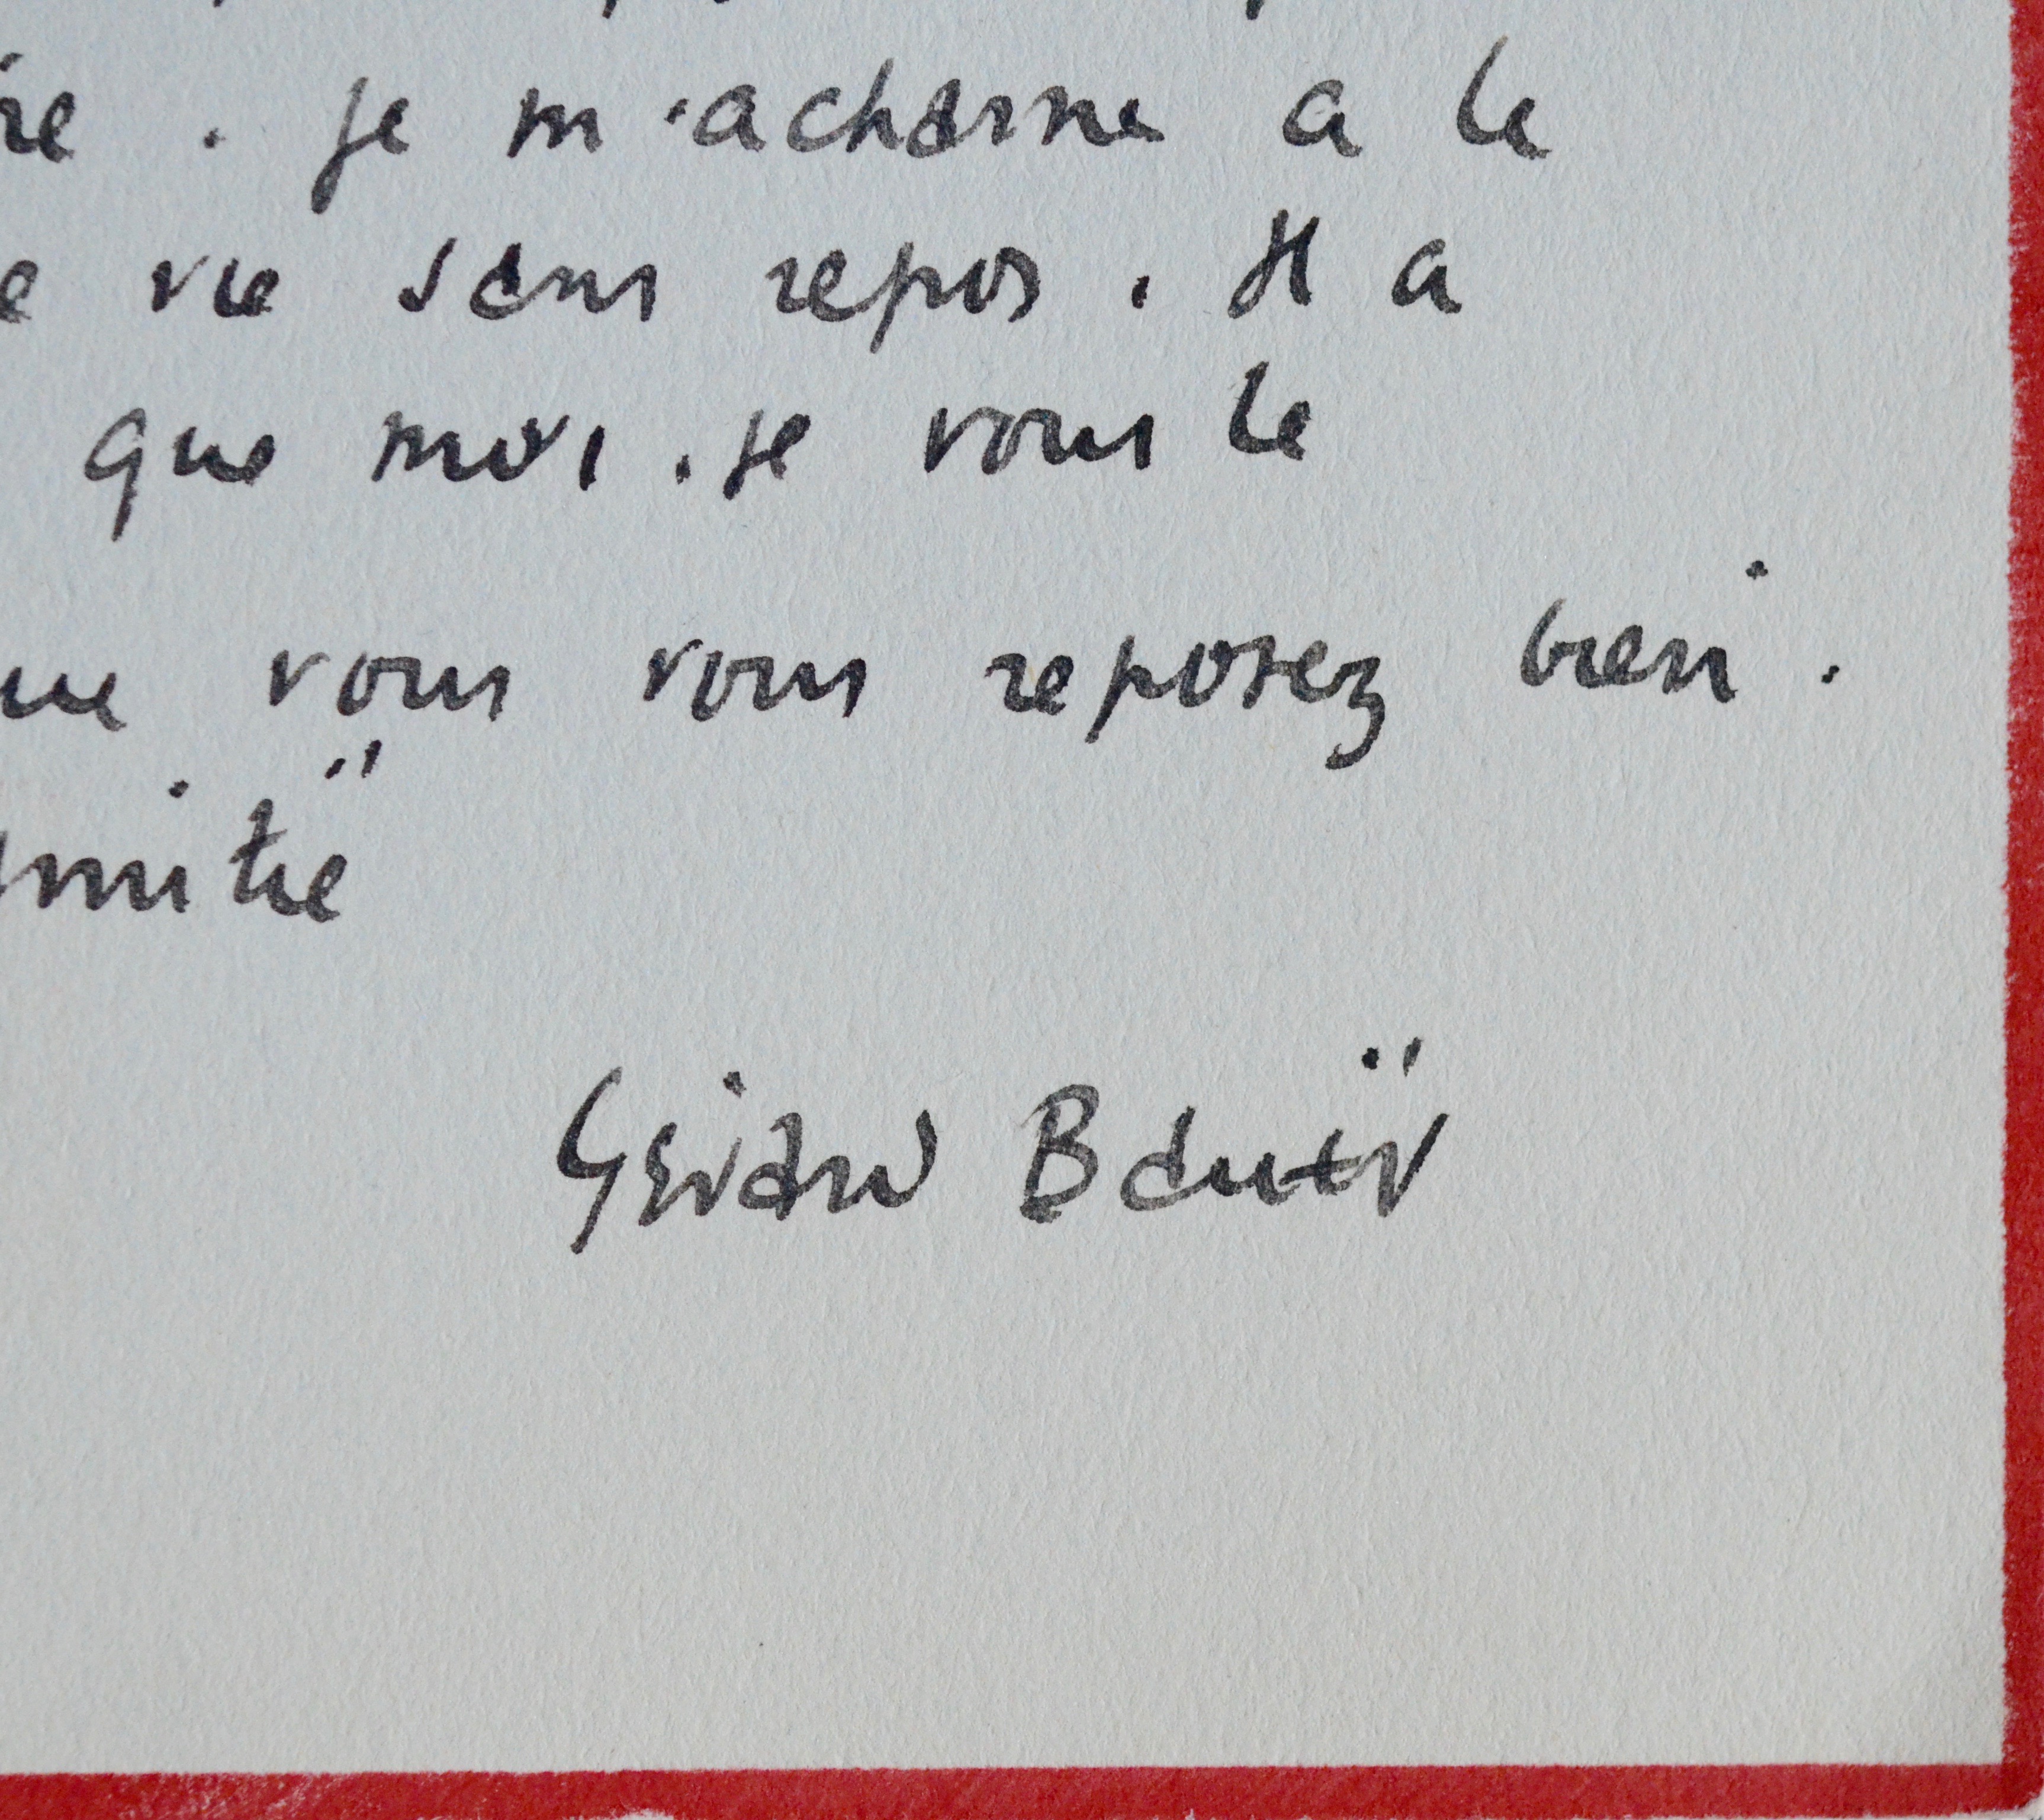 re . je m'acharne a le
e vie sans repos . Il a
que moi . je vous le
ue vous vous reposez bien .
mitié
Gérard